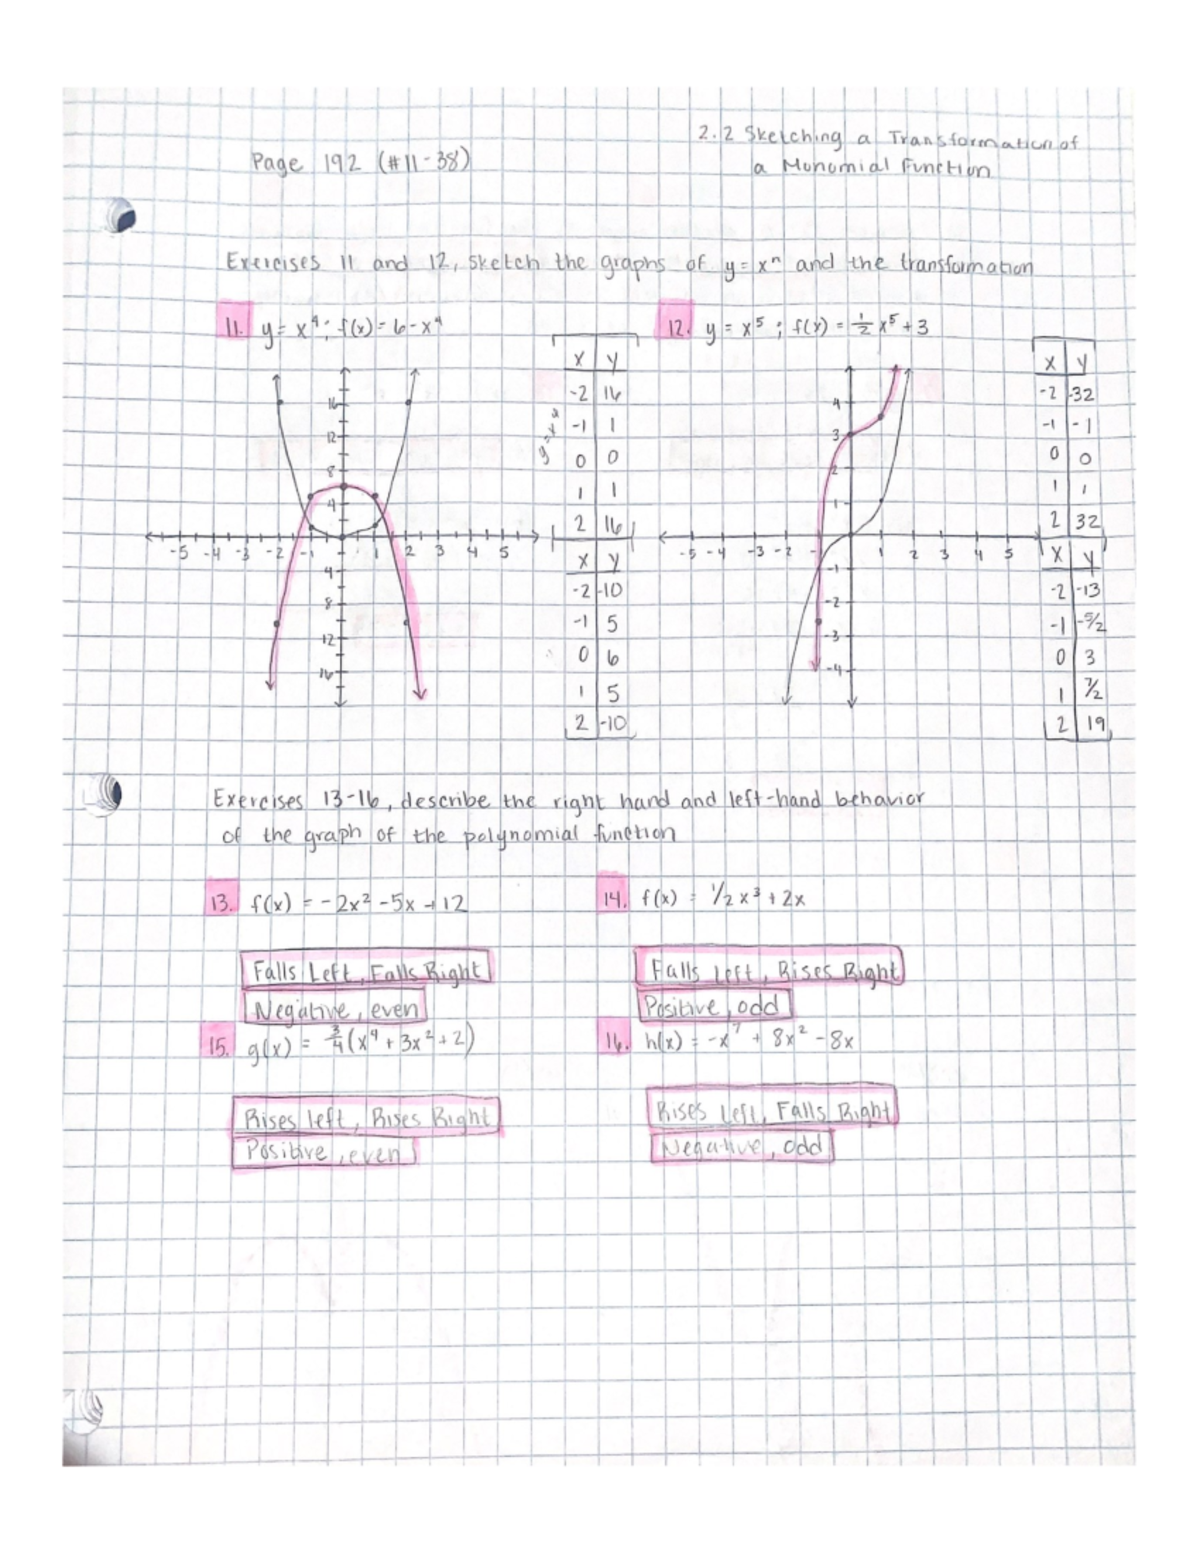 2.2 Sketching a Transformation of
a Monomial Function
Page 192 (#11-38)
Exercises 11 and 12, sketch the graphs of y = xⁿ and the transformation
11. y = x⁴ ; f(x) = 6 - x⁴
12. y = x⁵ ; f(x) = 1/2 x⁵ + 3
x y
-2 16
-1 1
0 0
1 1
2 16
x y
-2 -10
-1 5
0 6
1 5
2 -10
16
12
8
4
-5 -4 -3 -2 -1 1 2 3 4 5
4
8
12
16
x y
-2 -32
-1 -1
0 0
1 1
2 32
x y
-2 -13
-1 -5/2
0 3
1 7/2
2 19
4
3
2
1
-5 -4 -3 -2 1 2 3 4 5
-1
-2
-3
-4
Exercises 13-16, describe the right hand and left-hand behavior
of the graph of the polynomial function
13. f(x) = -2x² - 5x + 12
14. f(x) = 1/2 x³ + 2x
Falls Left, Falls Right
Negative, even
Falls left, Rises Right
Positive, odd
15. g(x) = 3/4 (x⁴ + 3x² + 2)
16. h(x) = -x⁷ + 8x² - 8x
Rises left, Rises Right
Positive, even
Rises Left, Falls Right
Negative, odd